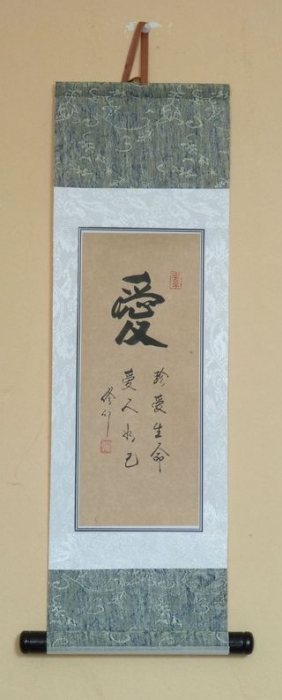 愛
珍愛生命
愛人如己